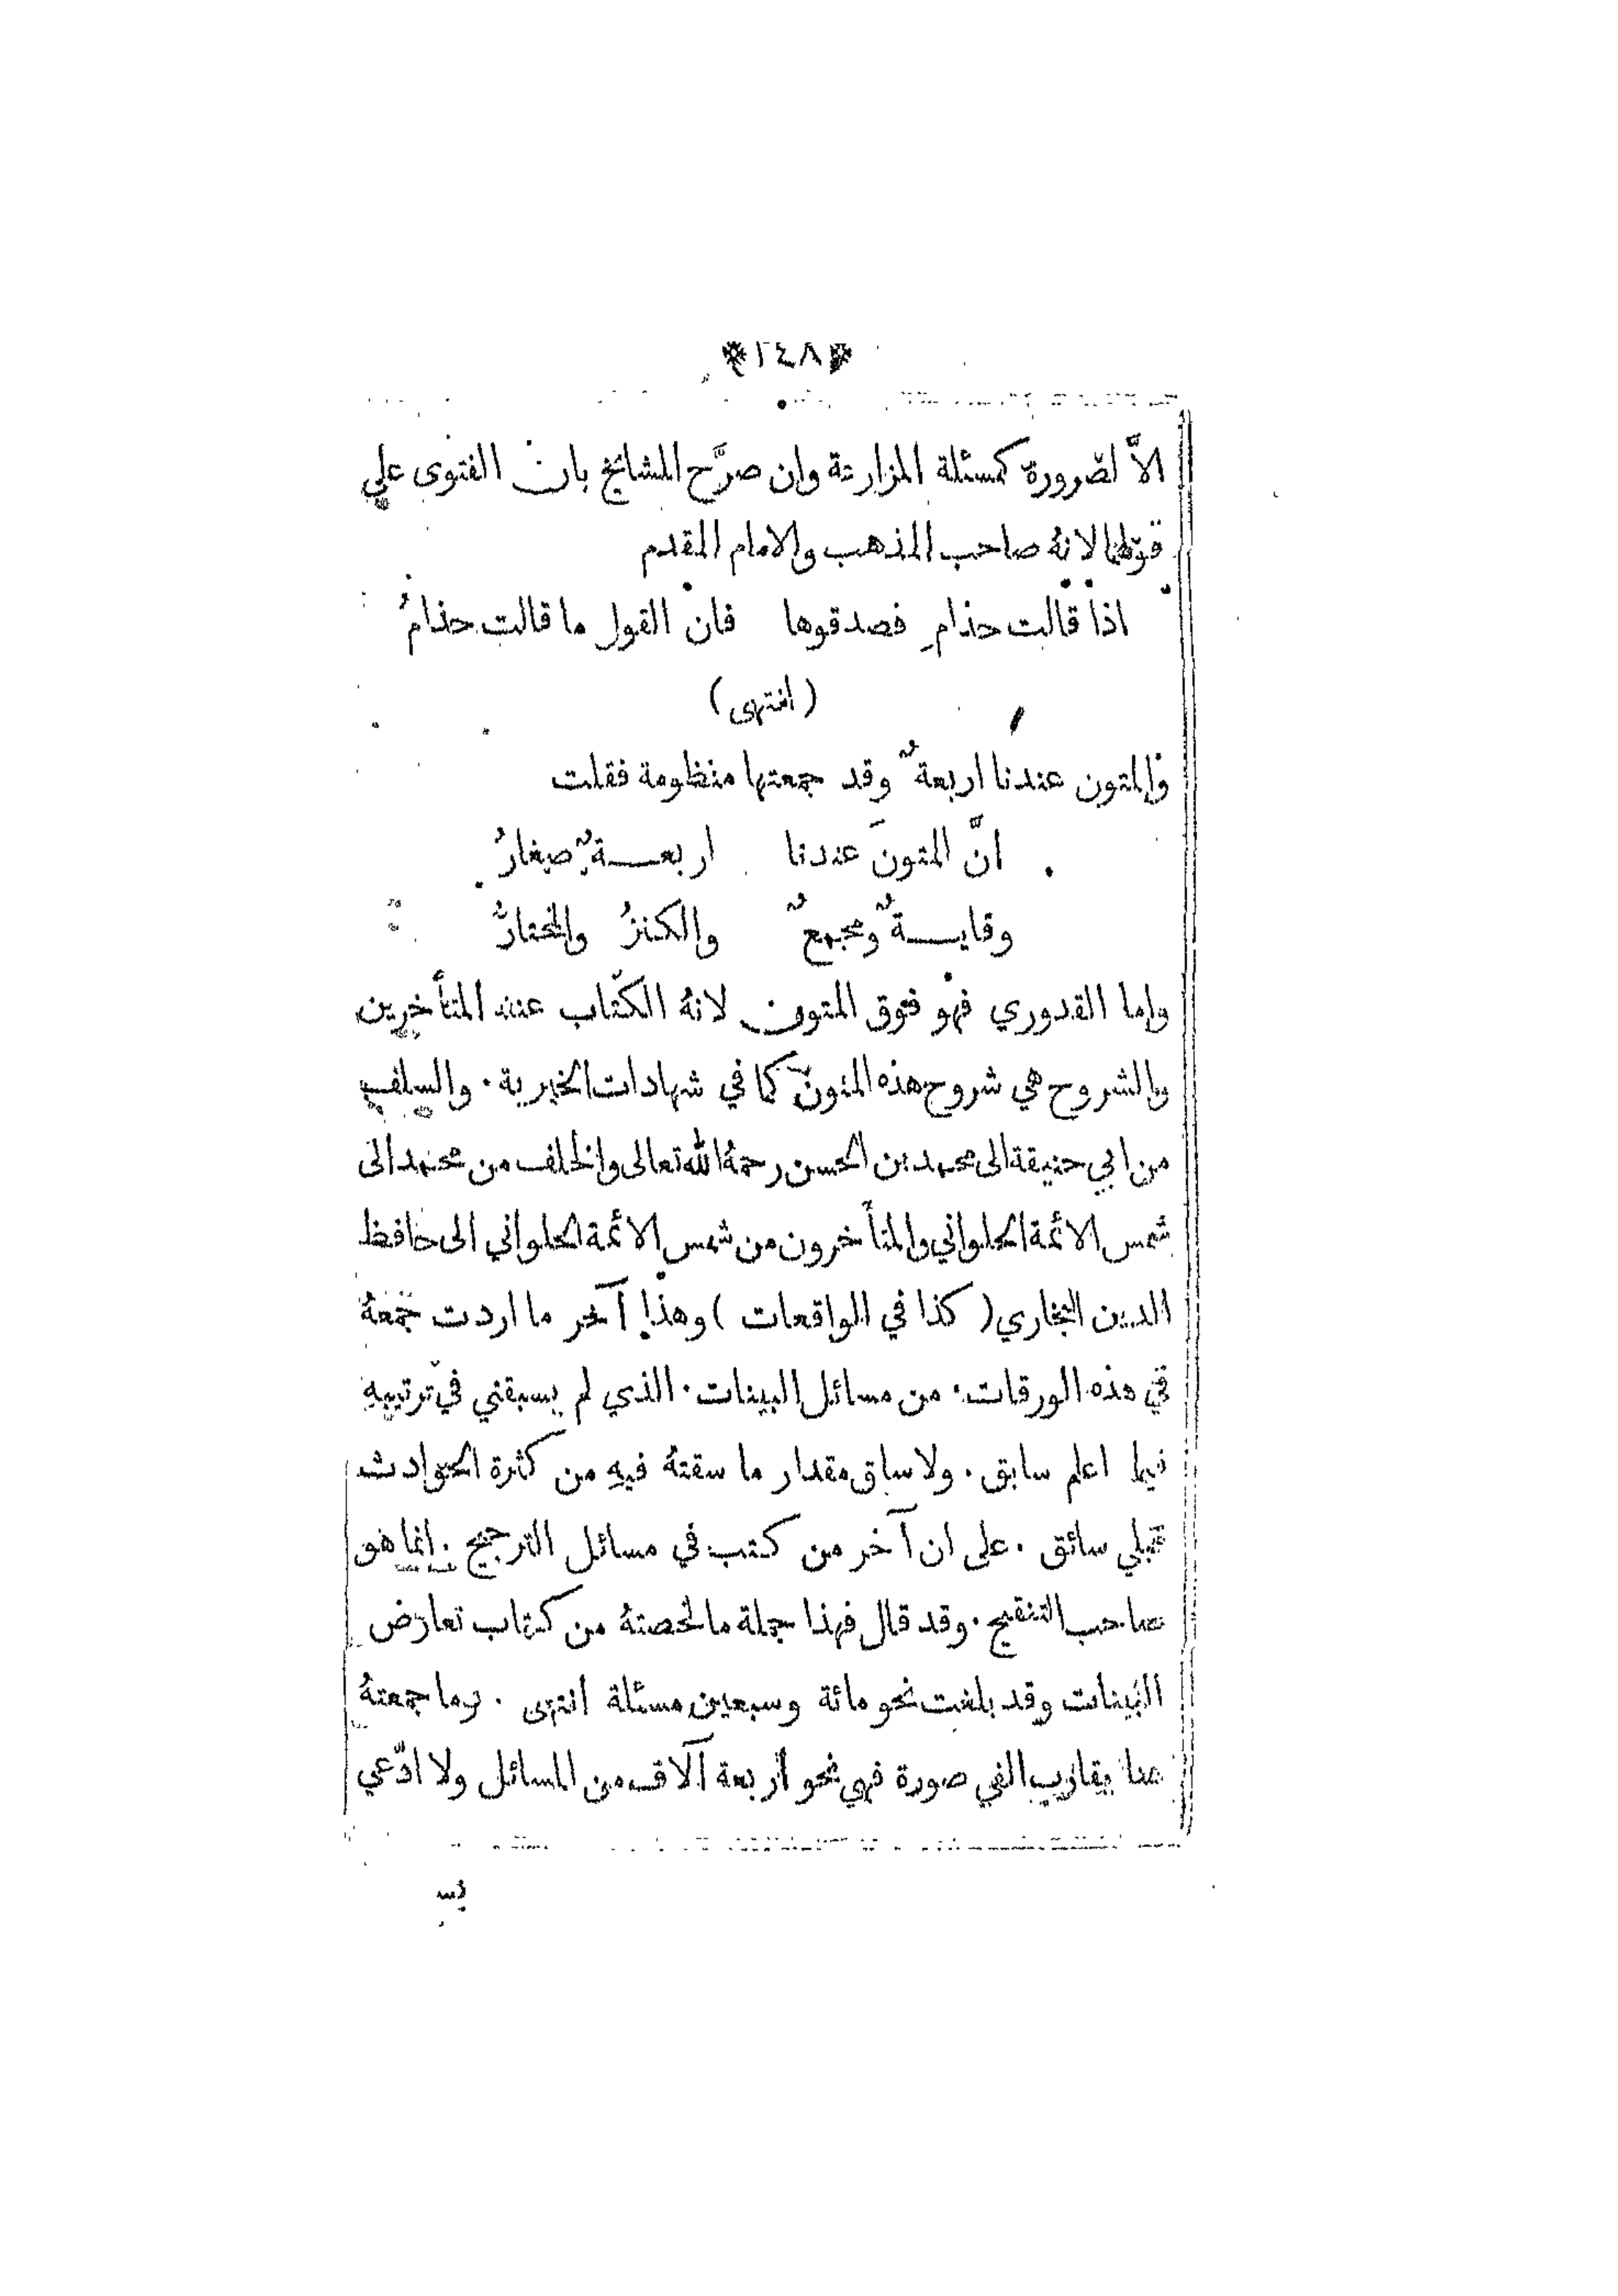 ﴿٢٤٨﴾
الاَّ لضرورة كمسئلة المزارعة وان صرَّح المشايخ بان الفتوى على
قولهما لانهُ صاحب المذهب والامام المقدم
اذا قالت حذامِ فصدقوها فان القول ما قالت حذامُ
(انتهى)
والمتون عندنا اربعةٌ وقد جمعتها منظومة فقلت
انَّ المتونَ عندنا اربعــةٌ صغارُ
وقايــةٌ ومجمعٌ والكنزُ والمختارُ
واما القدوري فهو فوق المتون لانهُ الكتاب عند المتأخرين
والشروح هي شروح هذه المتون كما في شهادات الخيرية. والسلف
من ابي حنيفة الى محمد بن الحسن رحمهُ الله تعالى والخلف من محمد الى
شمس الائمة الحلواني والمتأخرون من شمس الائمة الحلواني الى حافظ
الدين البخاري ( كذا في الواقعات ) وهذا آخر ما اردت جمعهُ
في هذه الورقات. من مسائل البينات. الذي لم يسبقني في ترتيبهِ
فيما اعلم سابق. ولا ساق مقدار ما سقتهُ فيهِ من كثرة الحوادث
قبلي سائق. على ان آخر من كتب في مسائل الترجيح. انما هو
صاحب التنقيح. وقد قال فهذا جملة ما لخصتهُ من كتاب تعارض
البينات وقد بلغت نحو مائة وسبعين مسئلة انتهى. وما جمعتهُ
هنا يقارب الفي صورة فهي نحو اربعة آلاف من المسائل ولا ادّعي